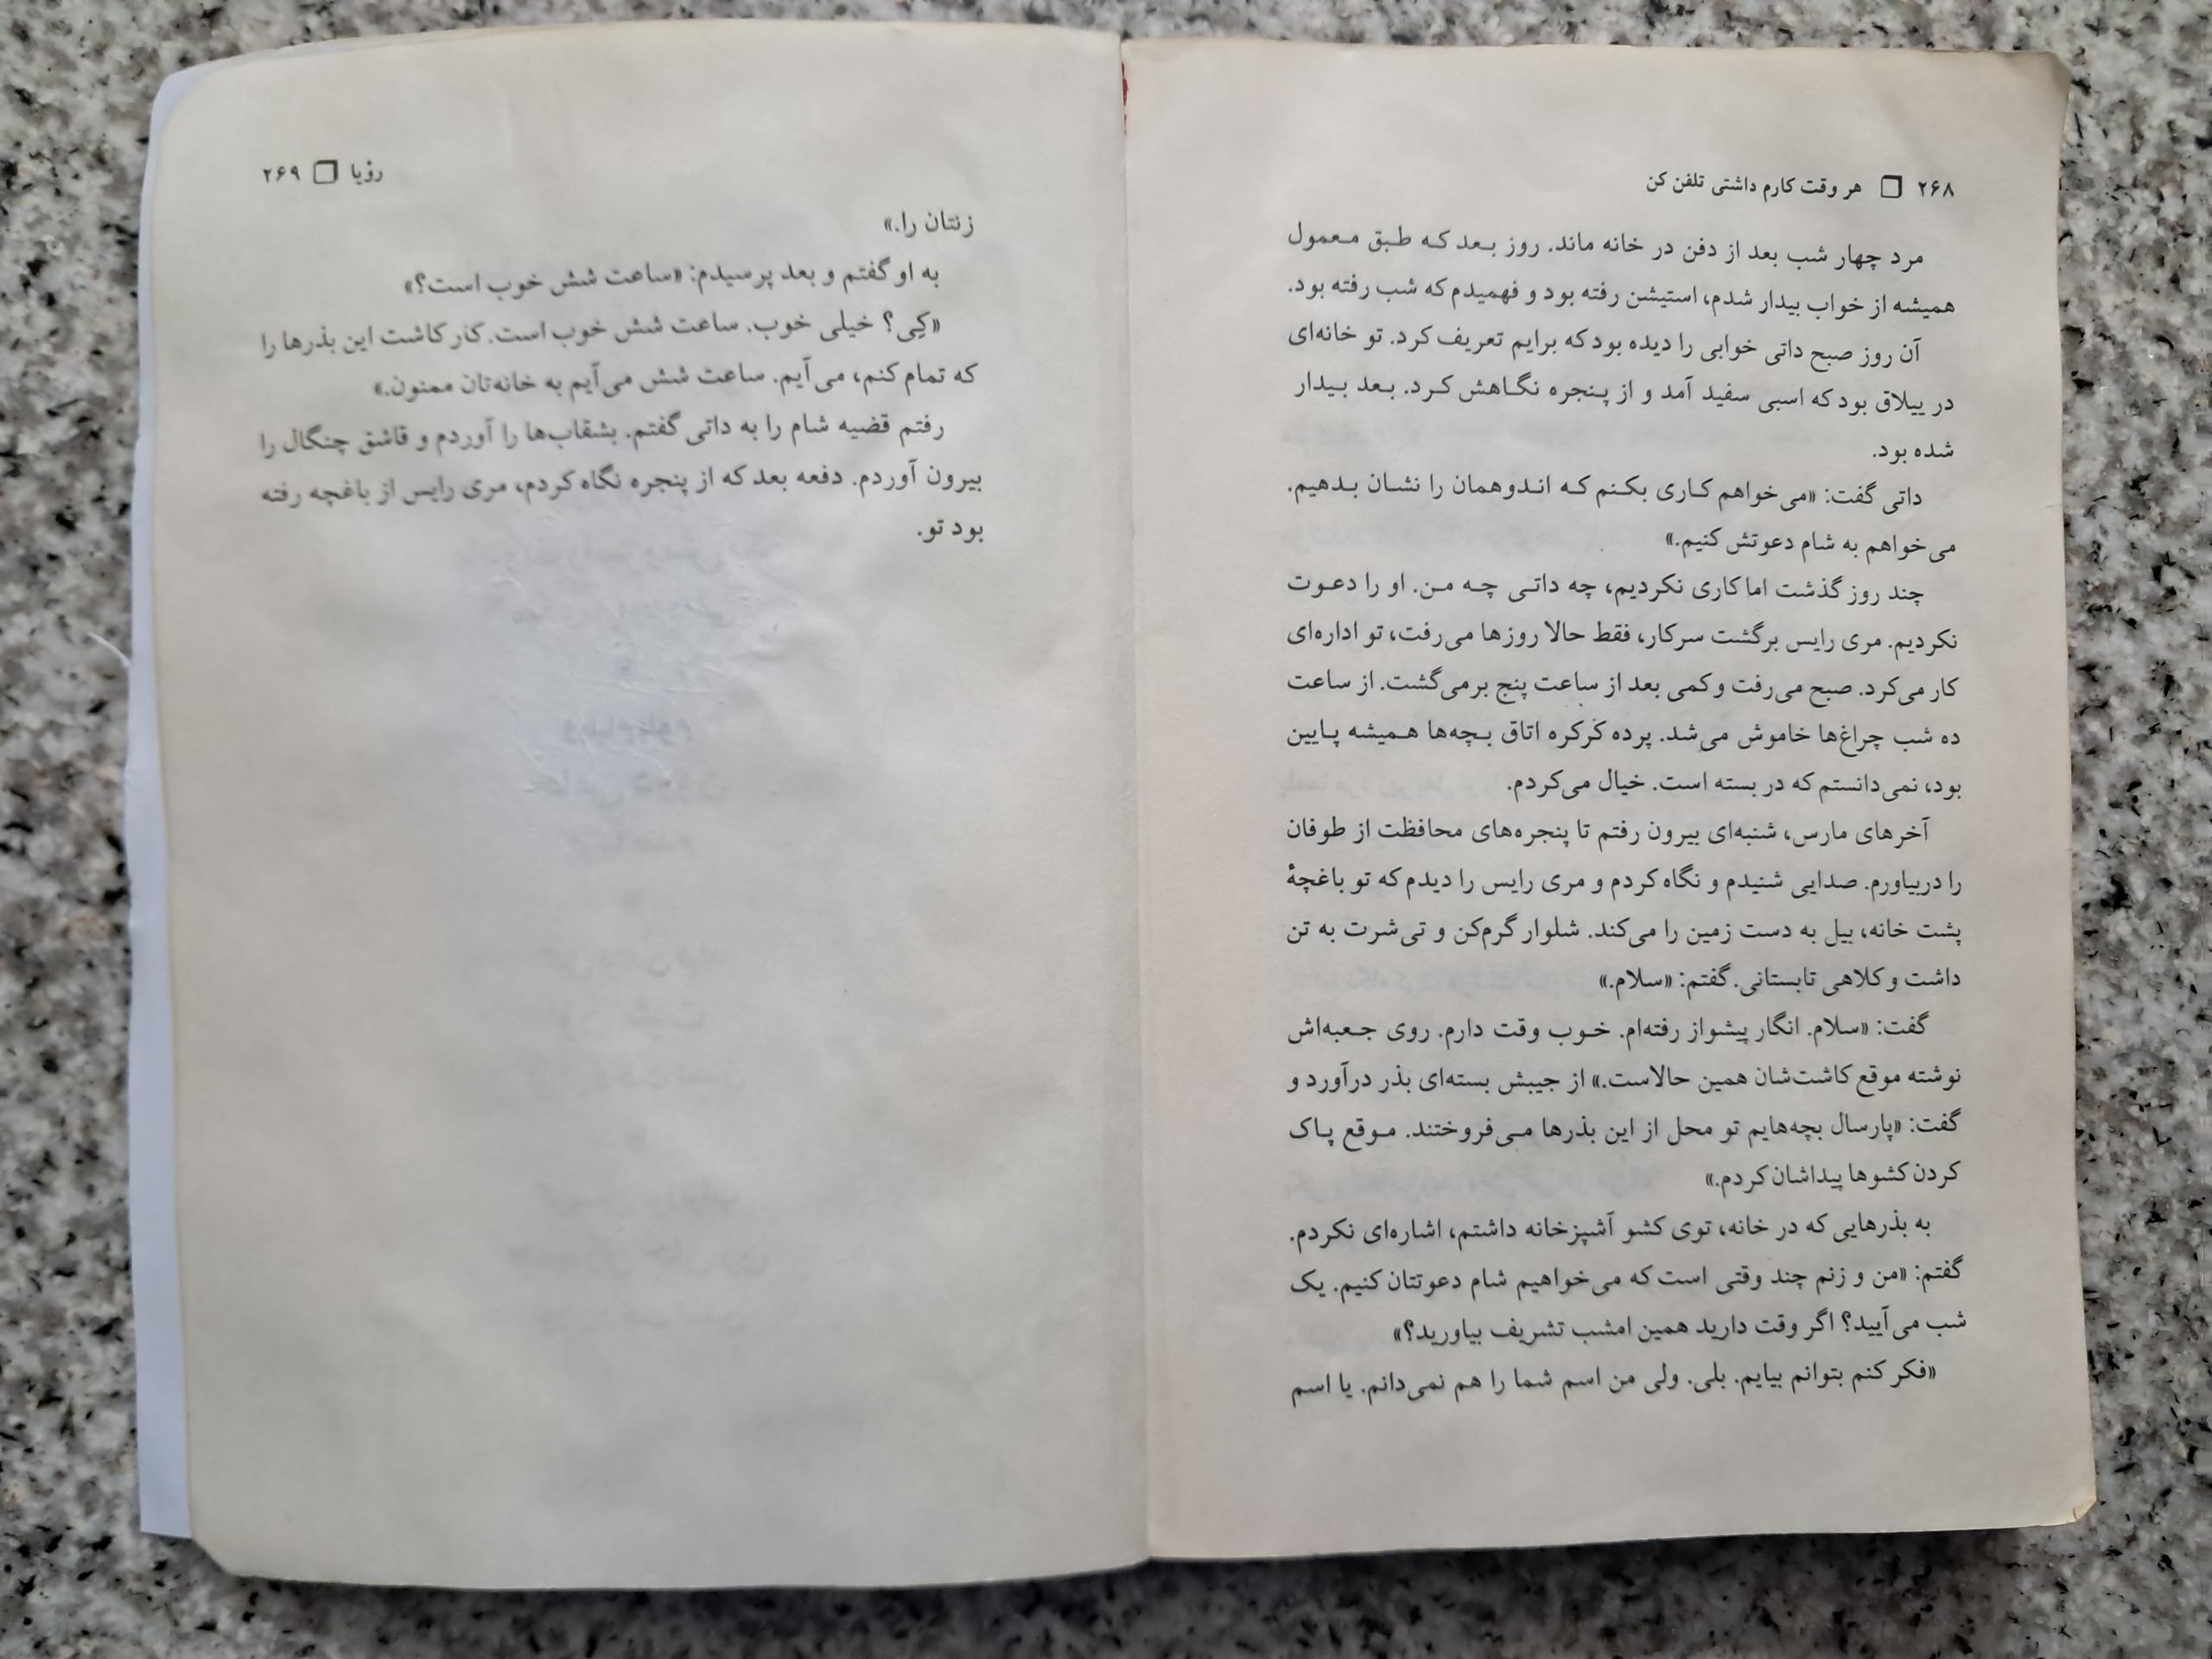 ۲۶۸ □ هر وقت کارم داشتی تلفن کن
مرد چهار شب بعد از دفن در خانه ماند. روز بعد که طبق معمول
همیشه از خواب بیدار شدم، استیشن رفته بود و فهمیدم که شب رفته بود.
آن روز صبح داتی خوابی را دیده بود که برایم تعریف کرد. تو خانه‌ای
در ییلاق بود که اسبی سفید آمد و از پنجره نگاهش کرد. بعد بیدار
شده بود.
داتی گفت: «می‌خواهم کاری بکنم که اندوهمان را نشان بدهیم.
می‌خواهم به شام دعوتش کنیم.»
چند روز گذشت اما کاری نکردیم، چه داتی چه من. او را دعوت
نکردیم. مری رایس برگشت سرکار، فقط حالا روزها می‌رفت، تو اداره‌ای
کار می‌کرد. صبح می‌رفت و کمی بعد از ساعت پنج برمی‌گشت. از ساعت
ده شب چراغ‌ها خاموش می‌شد. پرده کرکره اتاق بچه‌ها همیشه پایین
بود، نمی‌دانستم که در بسته است. خیال می‌کردم.
آخرهای مارس، شنبه‌ای بیرون رفتم تا پنجره‌های محافظت از طوفان
را دربیاورم. صدایی شنیدم و نگاه کردم و مری رایس را دیدم که تو باغچهٔ
پشت خانه، بیل به دست زمین را می‌کند. شلوار گرم‌کن و تی‌شرت به تن
داشت و کلاهی تابستانی. گفتم: «سلام.»
گفت: «سلام. انگار پیشواز رفته‌ام. خوب وقت دارم. روی جعبه‌اش
نوشته موقع کاشت‌شان همین حالاست.» از جیبش بسته‌ای بذر درآورد و
گفت: «پارسال بچه‌هایم تو محل از این بذرها می‌فروختند. موقع پاک
کردن کشوها پیداشان کردم.»
به بذرهایی که در خانه، توی کشو آشپزخانه داشتم، اشاره‌ای نکردم.
گفتم: «من و زنم چند وقتی است که می‌خواهیم شام دعوتتان کنیم. یک
شب می‌آیید؟ اگر وقت دارید همین امشب تشریف بیاورید؟»
«فکر کنم بتوانم بیایم. بلی. ولی من اسم شما را هم نمی‌دانم. یا اسم
رؤیا □ ۲۶۹
زنتان را.»
به او گفتم و بعد پرسیدم: «ساعت شش خوب است؟»
«کِی؟ خیلی خوب. ساعت شش خوب است. کار کاشت این بذرها را
که تمام کنم، می‌آیم. ساعت شش می‌آیم به خانه‌تان ممنون.»
رفتم قضیه شام را به داتی گفتم. بشقاب‌ها را آوردم و قاشق چنگال را
بیرون آوردم. دفعه بعد که از پنجره نگاه کردم، مری رایس از باغچه رفته
بود تو.